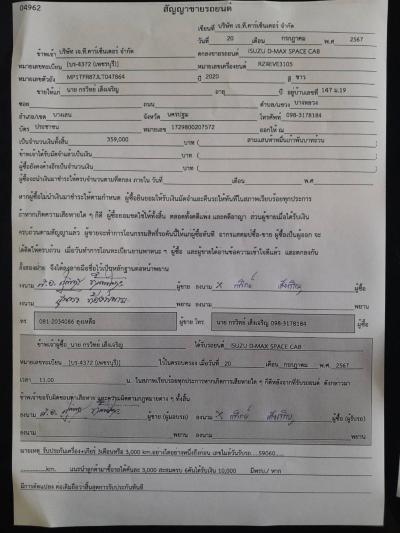 04962
สัญญาขายรถยนต์
เขียนที่ บริษัท เจ.ที.คาร์เซ็นเตอร์ จำกัด
วันที่ 20 เดือน กรกฎาคม พ.ศ. 2567
ข้าพเจ้า บริษัท เจ.ที.คาร์เซ็นเตอร์ จำกัด ตกลงขายรถยนต์ ISUZU D-MAX SPACE CAB
หมายเลขทะเบียน [บร-4372 (เพชรบุรี)] หมายเลขเครื่องยนต์ RZ3EVE3105
หมายเลขตัวถัง MP1TFR87JLT047864 ปี 2020 สี ขาว
ขายให้แก่ นาย กรวิทย์ เส็งเจริญ อายุ ปี อยู่บ้านเลขที่ 147 ม.19
ซอย ถนน ตำบล/แขวง บางหลวง
อำเภอ/เขต บางเลน จังหวัด นครปฐม โทรศัพท์ 098-3178184
บัตร ประชาชน หมายเลข 1729800207572 ออกให้ ณ
เป็นจำนวนเงินทั้งสิ้น 359,000 บาท ( สามแสนห้าหมื่นเก้าพันบาทถ้วน
ข้าพเจ้าได้รับมัดจำแล้วเป็นเงิน บาท (
ผู้ซื้อยังคงค้างอีกเป็นจำนวนเงิน บาท (
ผู้ซื้อจะนำเงินมาชำระให้ครบจำนวนตามที่ตกลง ภายใน วันที่ เดือน พ.ศ.
หากผู้ซื้อไม่นำเงินมาชำระให้ตามกำหนด ผู้ซื้อยินยอมให้ริบเงินมัดจำและคืนรถให้ทันทีในสภาพเรียบร้อยทุกประการ
ถ้าหากเกิดความเสียหายใด ๆ ก็ดี ผู้ซื้อยอมชดใช้ให้ทั้งสิ้น ตลอดทั้งคดีแพ่ง และคดีอาญา ส่วนผู้ขายเมื่อได้รับเงิน
ครบถ้วนตามสัญญาแล้ว ผู้ขายจะทำการโอนกรรมสิทธิ์รถคันนี้ให้แก่ผู้ซื้อทันที
ทั้งสองฝ่าย จึงได้ลงลายมือชื่อไว้เป็นหลักฐานต่อหน้าพยาน
ลงนาม ผู้ขาย ลงนาม X กรวิทย์ เส็งเจริญ ผู้ซื้อ
ลงนาม พยาน ลงนาม พยาน
โทร. 081-2034086 ผู้ขาย โทร. นาย กรวิทย์ เส็งเจริญ 098-3178184 ผู้ซื้อ
ข้าพเจ้าผู้ซื้อ นาย กรวิทย์ เส็งเจริญ ได้รับรถยนต์ ISUZU D-MAX SPACE CAB
หมายเลขทะเบียน [บร-4372 (เพชรบุรี)] ไปในครอบครอง เมื่อวันที่ 20 เดือน กรกฎาคม พ.ศ. 2567
เวลา 11.00 น. ในสภาพเรียบร้อยทุกประการหากเกิดการเสียหายใด ๆ ก็ดีหลังจากที่รับรถยนต์ ดังกล่าวมา
ข้าพเจ้าขอรับผิดชอบทุกสิ่งทั้งสิ้น
ลงนาม ผู้ขาย (ผู้มอบรถ) ลงนาม X กรวิทย์ เส็งเจริญ ผู้ซื้อ (ผู้รับรถ)
ลงนาม พยาน ลงนาม พยาน
หมายเหตุ รับประกันเครื่อง+เกียร์ 3เดือนหรือ 3,000 km.อย่างใดอย่างหนึ่งถึงก่อน เลขไมล์วันรับรถ.....59060
km. แนะนำลูกค้ามาซื้อรถได้คันละ 3,000 สะสมครบ 6คันได้รับเงิน 10,000
มีการดัดแปลง ต่อเติมถือว่าสิ้นสุดการรับประกันทันที